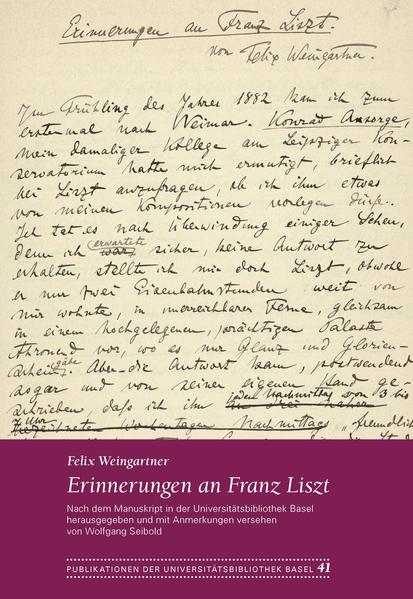 Erinnerungen an Franz Liszt.
von Felix Weingartner.
Im Frühling des Jahres 1882 kam ich zum
erstenmal nach Weimar. Konrad Ansorge,
mein damaliger Kollege am Leipziger Kon-
servatorium hatte mich ermutigt, brieflich
bei Liszt anzufragen, ob ich ihm etwas
von meinen Kompositionen vorlegen dürfe.
Ich tat es nach Überwindung einiger Scheu,
erwartete
denn ich war sicher, keine Antwort zu
erhalten, stellte ich mir doch Liszt, obwohl
er nur zwei Eisenbahnstunden weit von
mir wohnte, in unerreichbarer Ferne, gleichsam
in einem hochgelegenen, prächtigen Palaste
thronend vor, wo es nur Glanz und Glorien-
gäbe
schein. Aber die Antwort kam, postwendend
sogar und von seiner eigenen Hand ge-
jeden Nachmittag von 3 bis
schrieben, daß ich ihm
Uhr
Wochentagen Nachmittags „freundlich
Felix Weingartner
Erinnerungen an Franz Liszt
Nach dem Manuskript in der Universitätsbibliothek Basel
herausgegeben und mit Anmerkungen versehen
von Wolfgang Seibold
PUBLIKATIONEN DER UNIVERSITÄTSBIBLIOTHEK BASEL 41